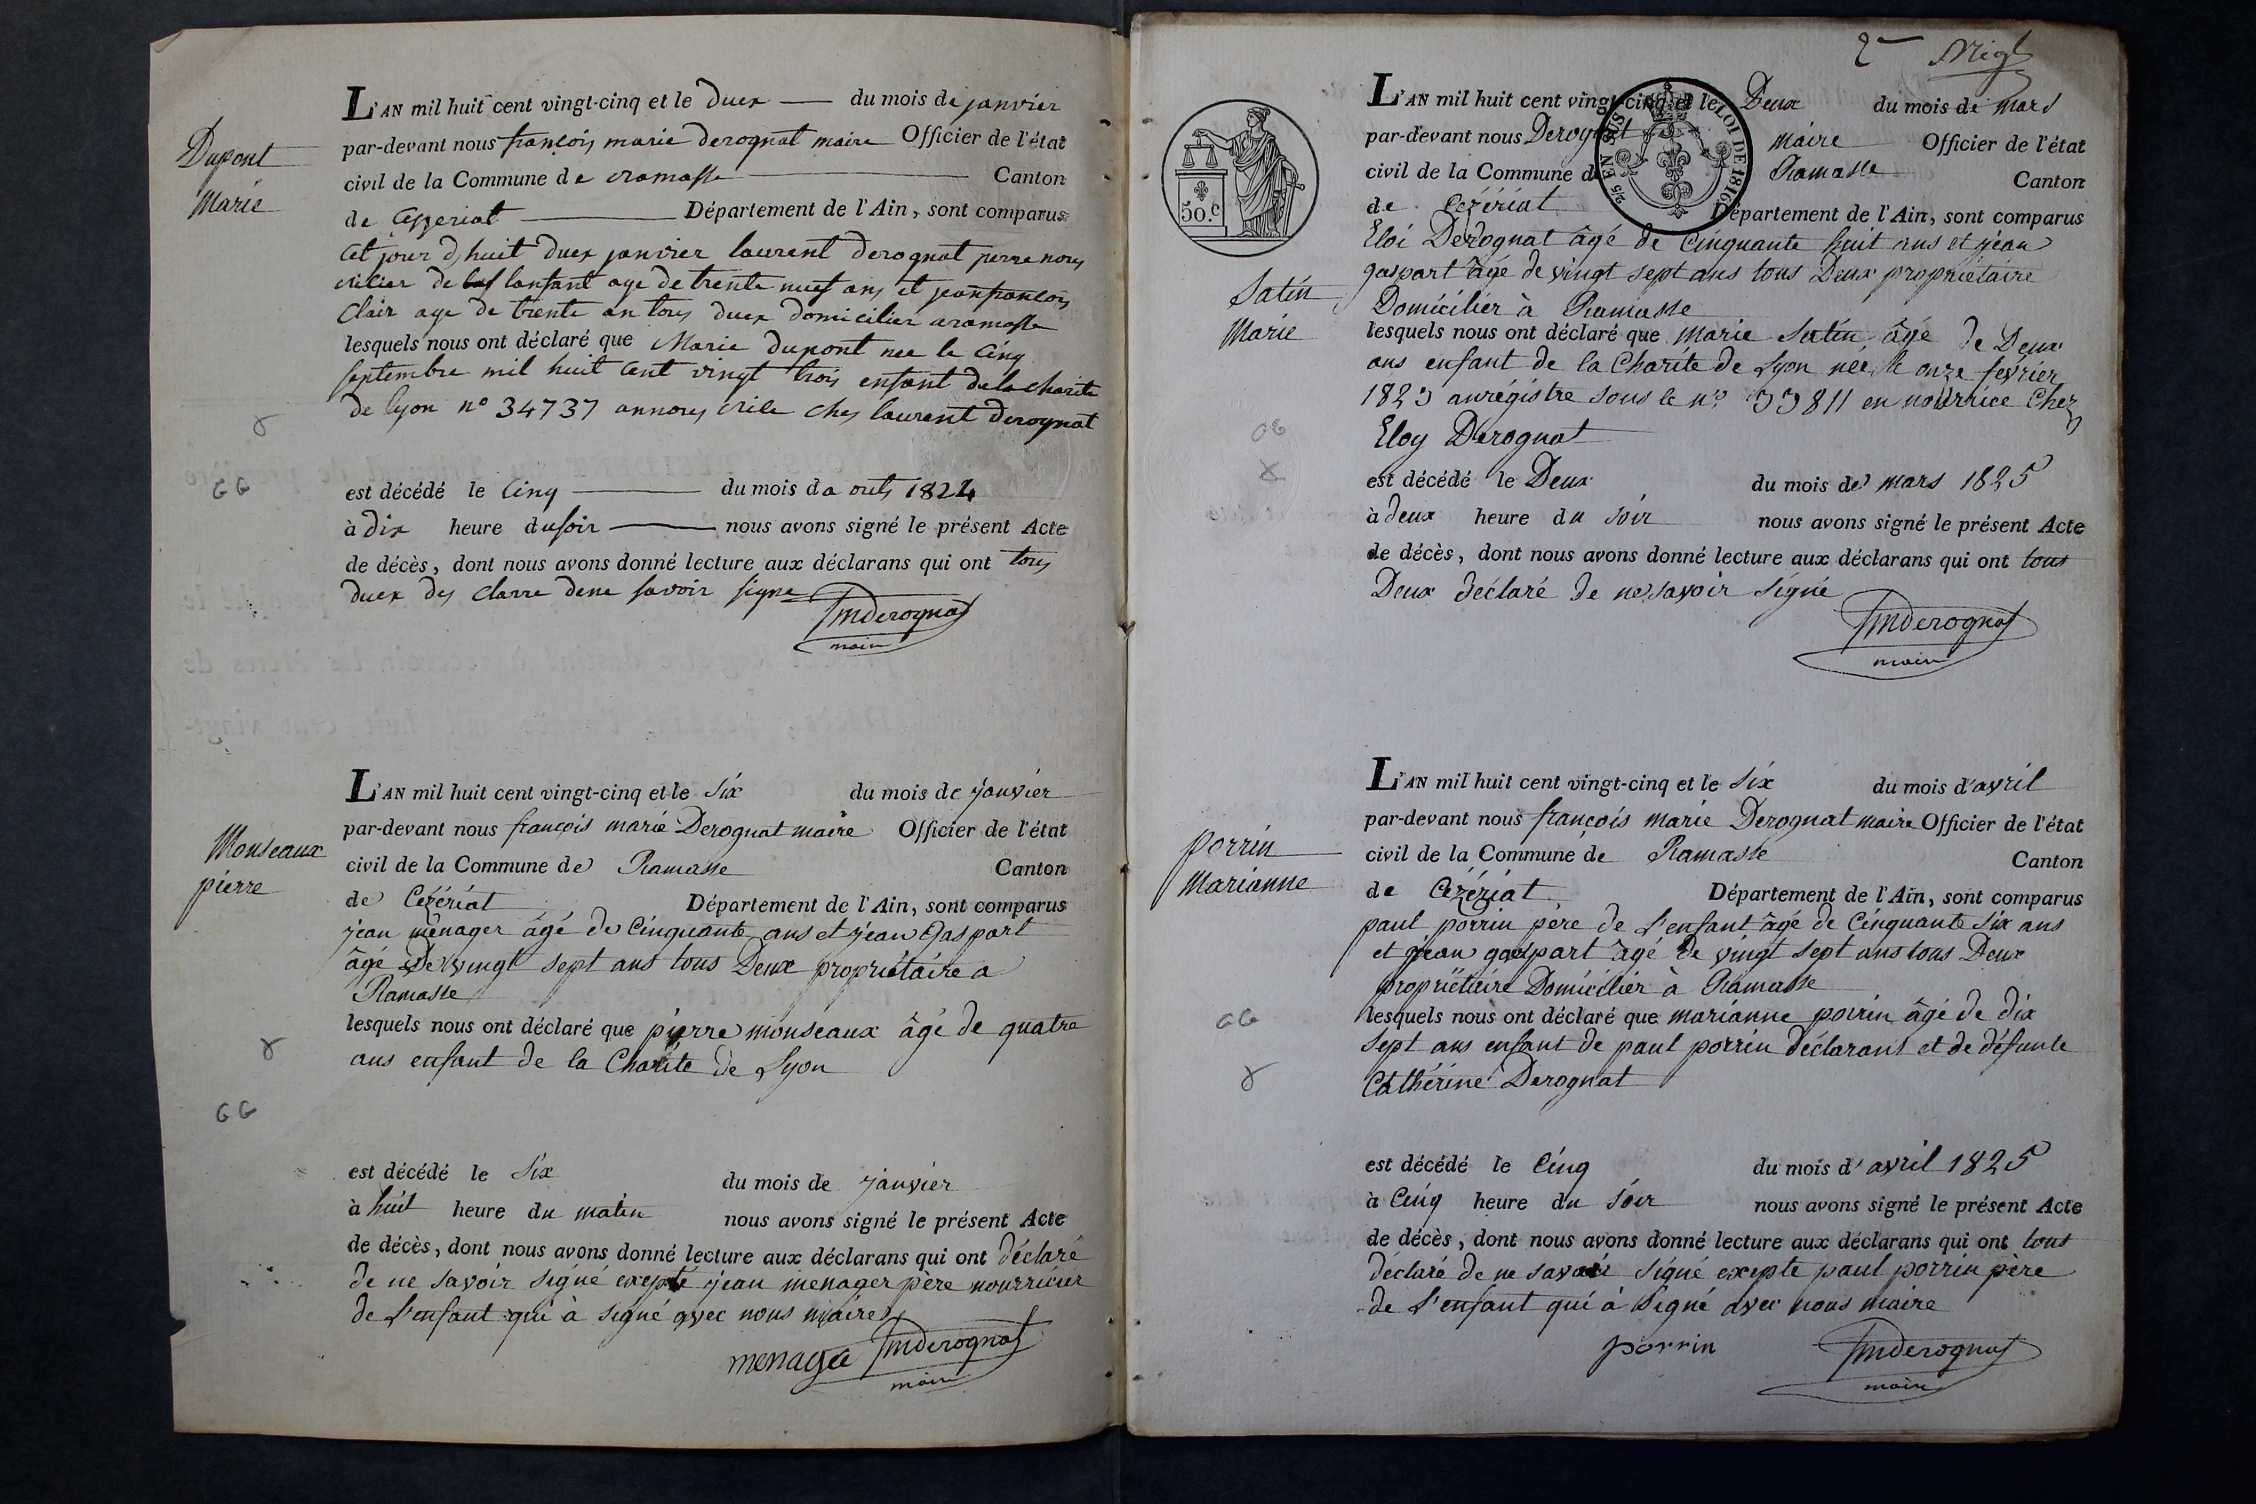 Dupont
Marie
L'AN mil huit cent vingt-cinq et le duex du mois de janvier
par-devant nous françois marie derognat maire Officier de l'état
civil de la Commune de aramasse Canton
de Cezzeriat Département de l'Ain, sont comparus
cet jour d huit duex janvier laurent derognat perre nour
de lanfant age de trente neuf ans et jeanfrancois
Clair age de trente an tous duex domicilier aramasse
lesquels nous ont déclaré que Marie dupont nee le Cinq
septembre mil huit cent vingt trois enfant de la charite
de lyon n° 34737 annoury chez laurent derognat
GG
est décédé le Cinq du mois da outs 1824
à dix heure dusoir nous avons signé le présent Acte
de décès, dont nous avons donné lecture aux déclarans qui ont tous
duex des clarre dene savoir signe
fmderognat
maire
Monseaux
pierre
L'AN mil huit cent vingt-cinq et le Six du mois de janvier
par-devant nous françois marie Derognat maire Officier de l'état
civil de la Commune de Ramasse Canton
de Cézériat Département de l'Ain, sont comparus
jean ménager âgé de Cinquante ans et jean Gaspart
âgé De vingt sept ans tous Deux propriétaire a
Ramasse
lesquels nous ont déclaré que pierre monseaux âgé de quatre
ans enfant de la Charité de Lyon
GG
est décédé le Six du mois de janvier
à huit heure du matin nous avons signé le présent Acte
de décès, dont nous avons donné lecture aux déclarans qui ont déclaré
de ne savoir signé excepté jean menager père nourricier
de L'enfant qui à signé avec nous maire
menage fmderognat
maire
2me
50.c
LOI DE 1816
EN SUS
L'AN mil huit cent vingt-cinq et le Deux du mois de mars
par-devant nous Derognat maire Officier de l'état
civil de la Commune de Ramasse Canton
de Cézériat Département de l'Ain, sont comparus
Eloi Derognat âgé de Cinquante huit ans et jean
gaspart âgé de vingt sept ans tous Deux propriétaire
Domicilier à Ramasse
Satin
Marie
lesquels nous ont déclaré que Marie Satin âgé de Deux
ans enfant de la Charité de Lyon née le onze février
1823 anrégistre sous le n° 33811 en nourrice Chez
Eloy Derognat
est décédé le Deux du mois de mars 1825
à deux heure du soir nous avons signé le présent Acte
de décès, dont nous avons donné lecture aux déclarans qui ont tous
Deux déclaré de ne savoir signé
fmderognat
maire
porrin
Marianne
L'AN mil huit cent vingt-cinq et le Six du mois d'avril
par-devant nous françois marie Derognat maire Officier de l'état
civil de la Commune de Ramasse Canton
de Cézériat Département de l'Ain, sont comparus
paul porrin père de L'enfant âgé de Cinquante Six ans
et jean gaspart âgé De vingt sept ans tous Deux
propriétaire Domicilier à Ramasse
lesquels nous ont déclaré que marianne porrin âgé de dix
sept ans enfant de paul porrin déclarant et de défunte
Cathérine Derognat
GG
est décédé le Cinq du mois d'avril 1825
à Cinq heure du soir nous avons signé le présent Acte
de décès, dont nous avons donné lecture aux déclarans qui ont tous
déclaré de ne savoir signé excepte paul porrin père
de L'enfant qui à signé avec nous maire
porrin fmderognat
maire